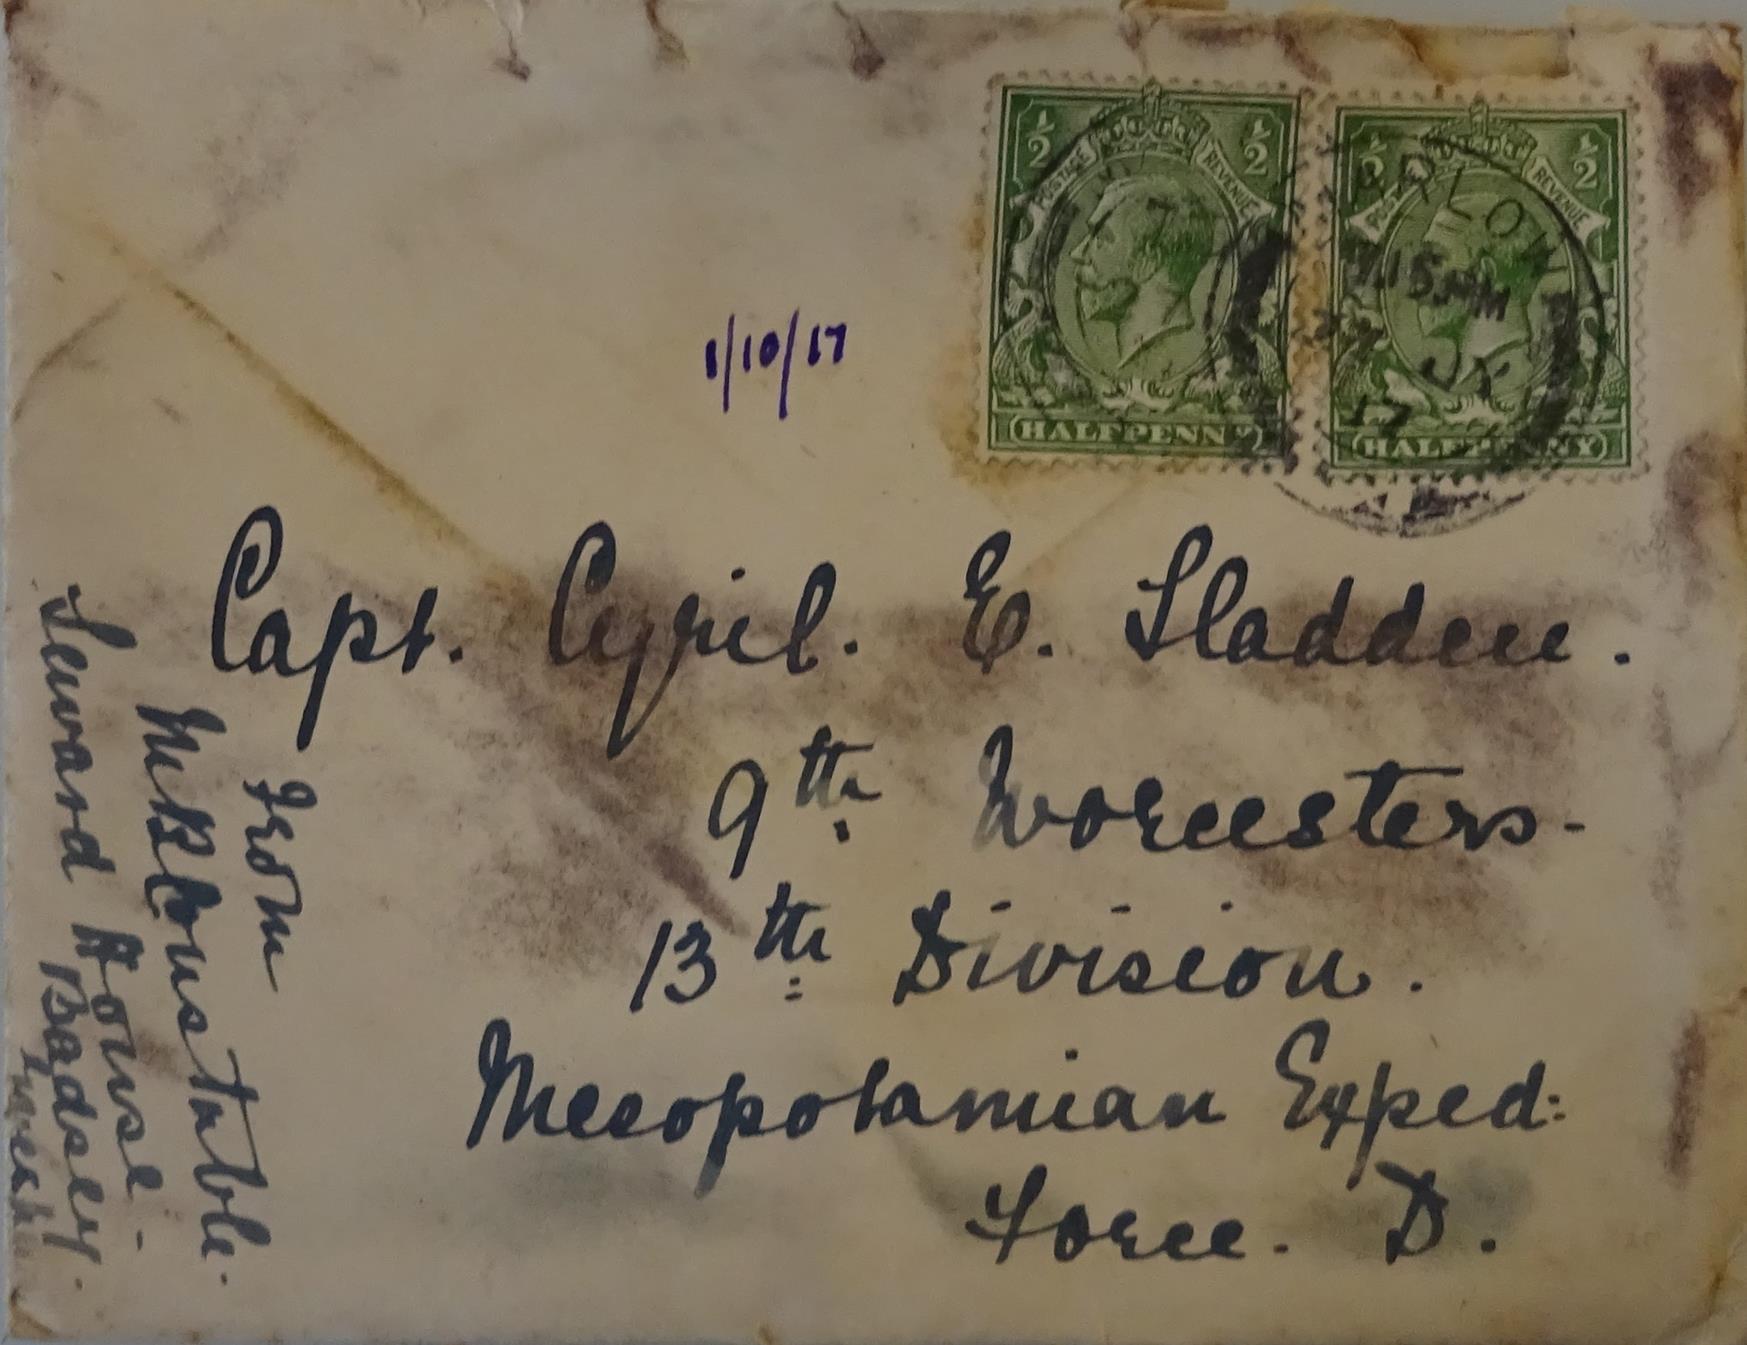 ½ POSTAGE REVENUE ½
HALFPENNY
POSTAGE REVENUE ½
HALFPENNY
7.15 PM
17
1/10/17
Capt. Cyril. E. Sladden.
9th Worcesters-
13th Division.
Mesopotamian Exped:
Force. D.
From
Constable.
Seward House.
Badsey.